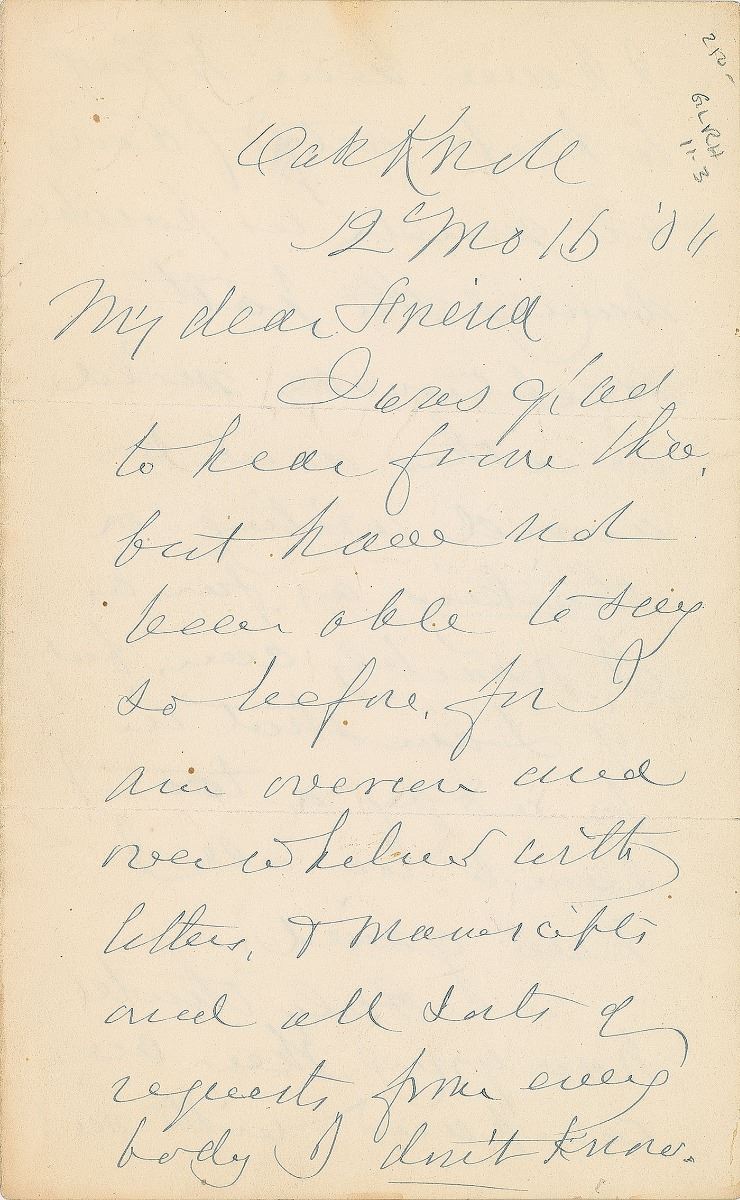 250-
GLRH
11-3
Oak Knoll
12th Mo 15 '81
My dear Friend
I was glad
to hear from thee,
but have not
been able to say
so before, for I
am overrun and
overwhelmed with
letters, & manuscripts
and all sorts of
requests from every
body I don't know.